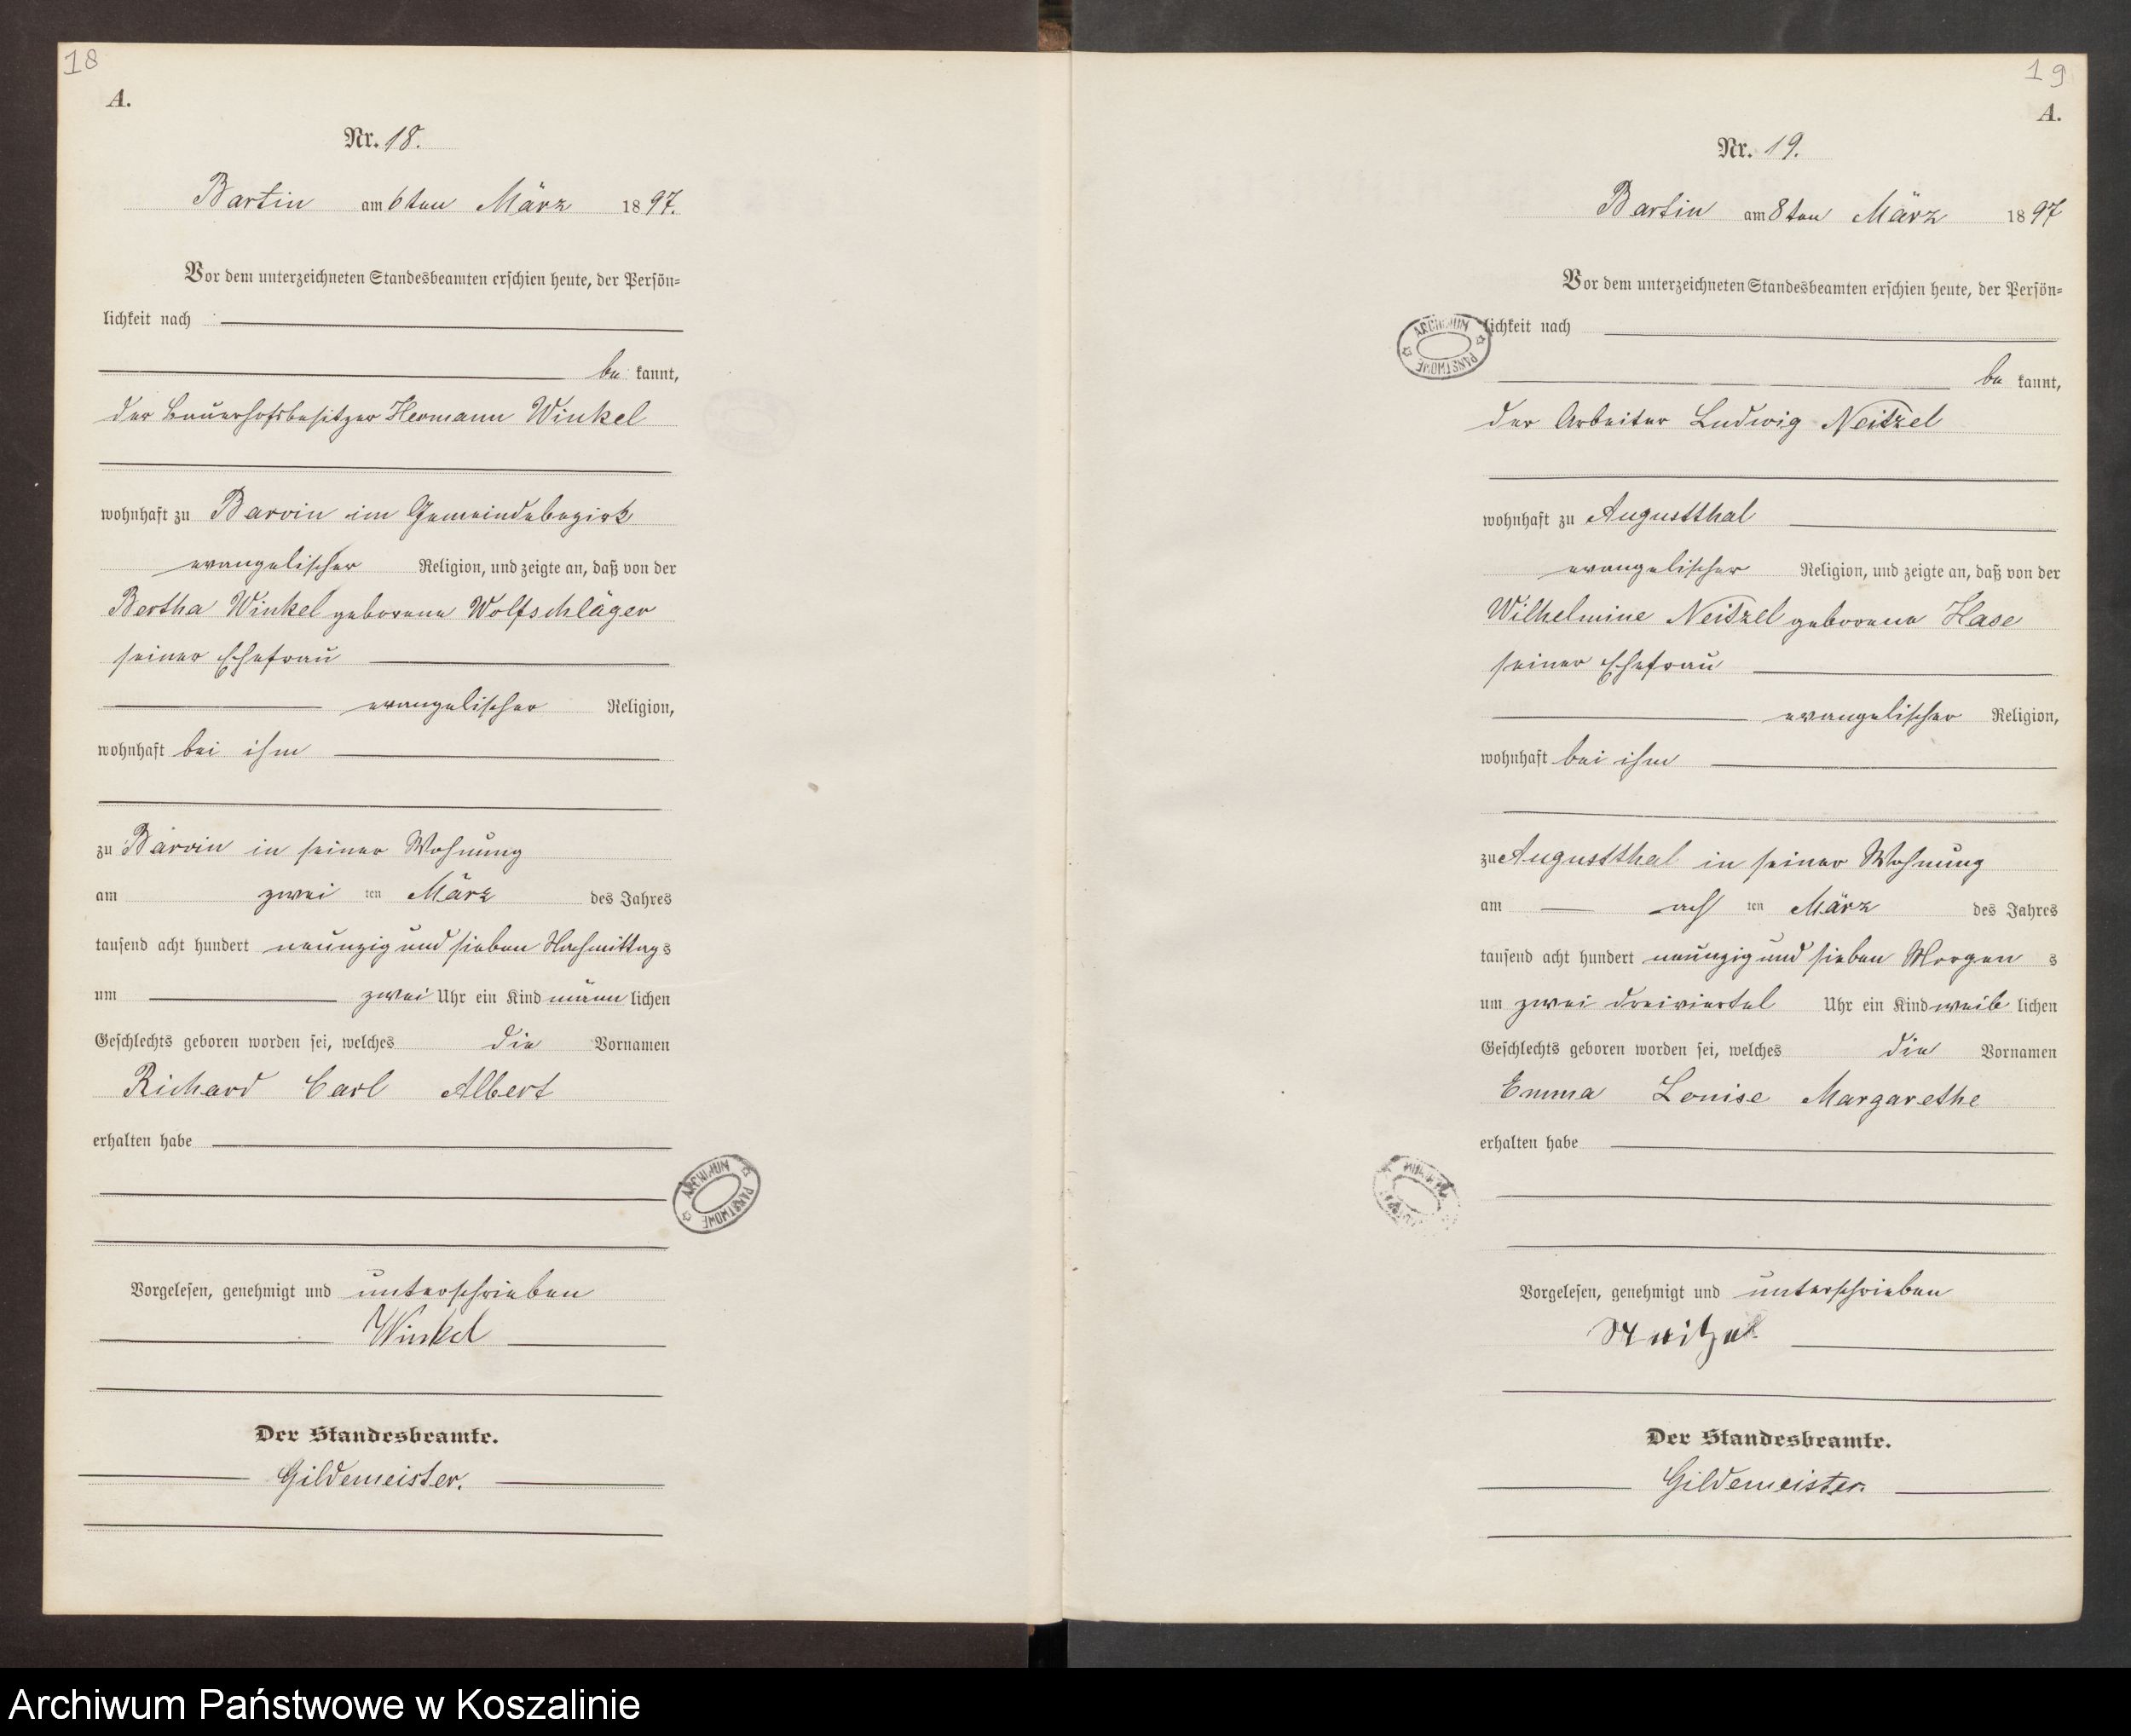 18
A.
Nr. 18.
Bartin am 6ten März 1897.
Vor dem unterzeichneten Standesbeamten erschien heute, der Persön-
lichkeit nach
be kannt,
der Bauerhofsbesitzer Hermann Winkel
wohnhaft zu Barvin im Gemeindebezirk
evangelischer Religion, und zeigte an, daß von der
Bertha Winkel geborene Wolfschläger
seiner Ehefrau
evangelischer Religion,
wohnhaft bei ihm
zu Barvin in seiner Wohnung
am zwei ten März des Jahres
tausend acht hundert neunzig und sieben Nachmittags
um zwei Uhr ein Kind männ lichen
Geschlechts geboren worden sei, welches die Vornamen
Richard Carl Albert
erhalten habe
ARCHIWUM PAŃSTWOWE
Vorgelesen, genehmigt und unterschrieben
Winkel
Der Standesbeamte.
Gildemeister.
19
A.
Nr. 19.
Bartin am 8ten März 1897
Vor dem unterzeichneten Standesbeamten erschien heute, der Persön-
lichkeit nach
ARCHIWUM PAŃSTWOWE
be kannt,
der Arbeiter Ludwig Neitzel
wohnhaft zu Augustthal
evangelischer Religion, und zeigte an, daß von der
Wilhelmine Neitzel geborene Hase
seiner Ehefrau
evangelischer Religion,
wohnhaft bei ihm
zu Augustthal in seiner Wohnung
am ach ten März des Jahres
tausend acht hundert neunzig und sieben Morgen s
um zwei dreiviertel Uhr ein Kind weib lichen
Geschlechts geboren worden sei, welches die Vornamen
Emma Louise Margarethe
erhalten habe
Vorgelesen, genehmigt und unterschrieben
Neitzel
Der Standesbeamte.
Gildemeister.
Archiwum Państwowe w Koszalinie